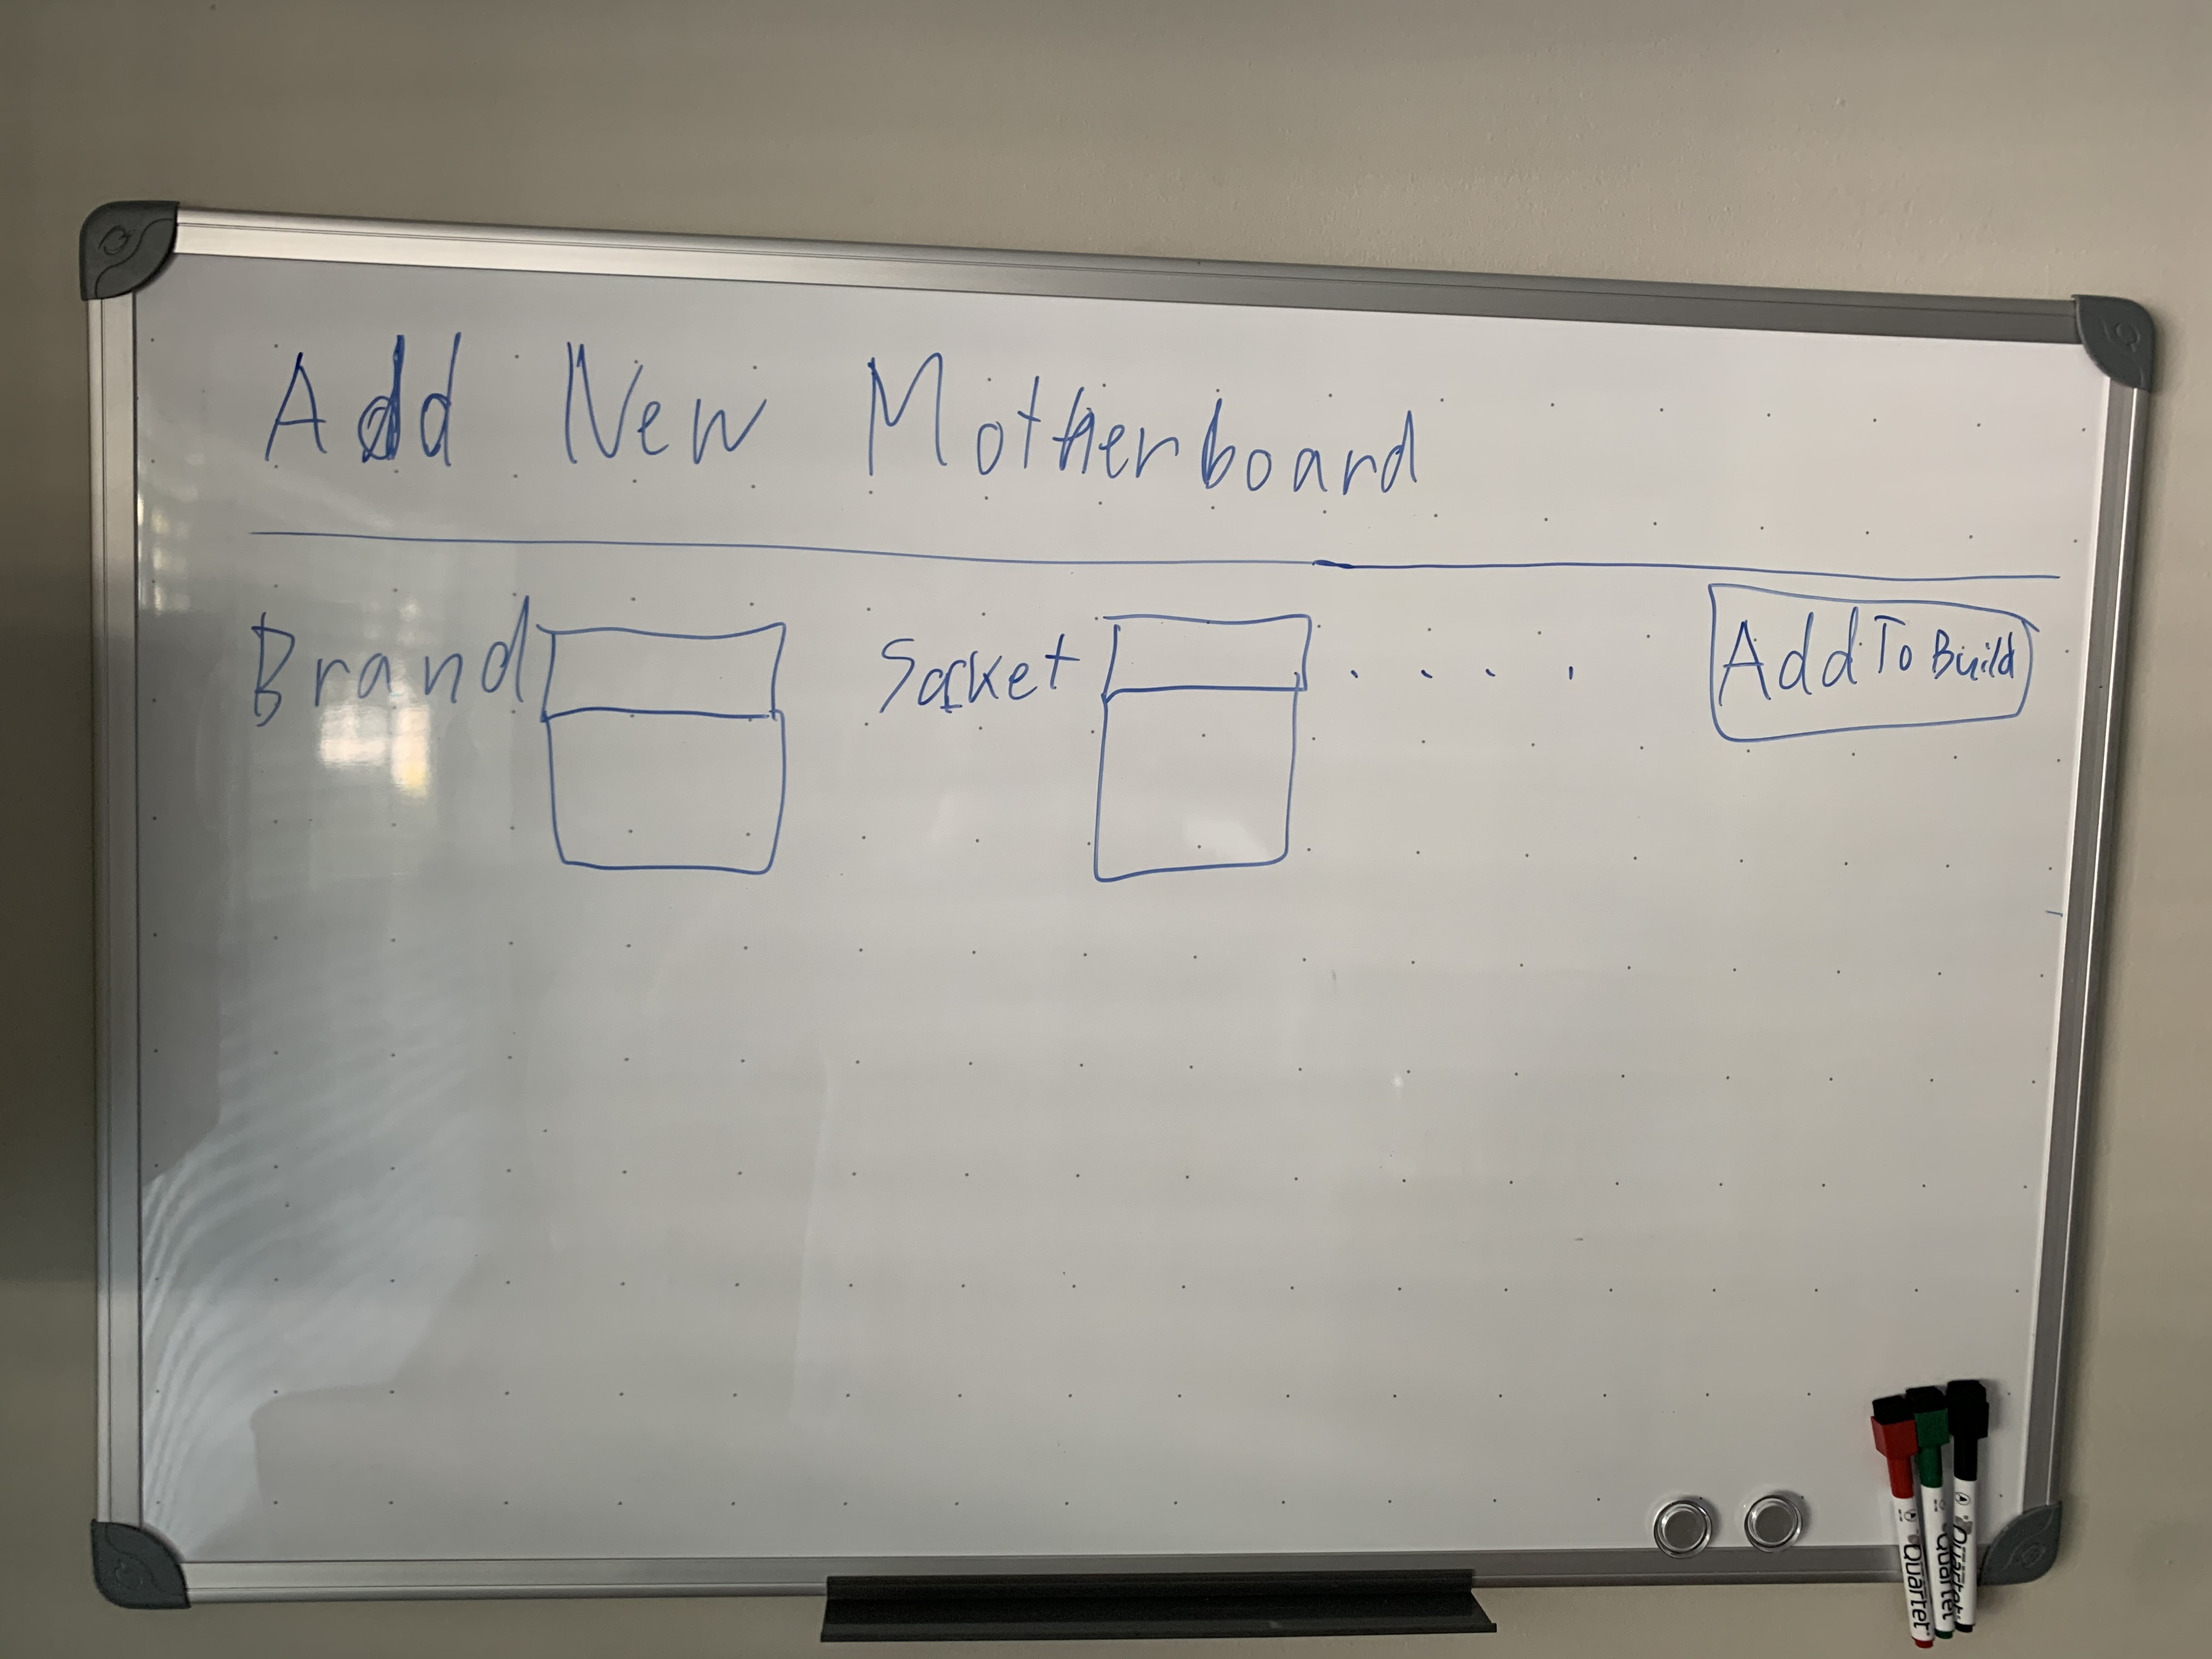 Add New Motherboard
Brand Socket . . . . Add To Build
Quartet
Quartet
Quartet